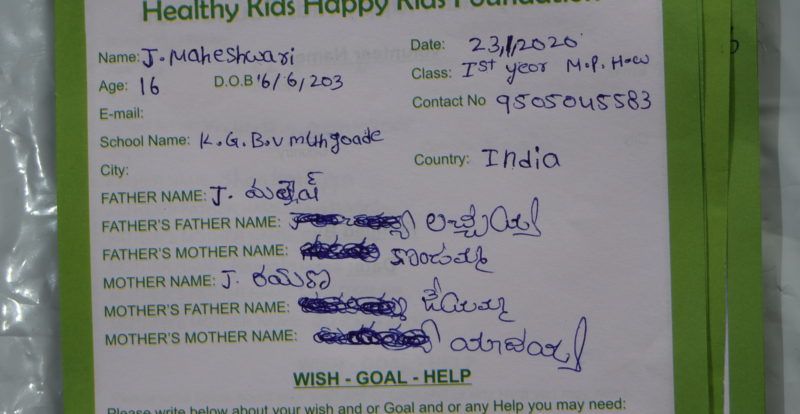 Healthy Kids Happy Kids Foundation
Name: J. Maheshwari Date: 23/1/2020
Age: 16 D.O.B 16/6/203 Class: Ist year M.P. H.W
E-mail: Contact No 9505045583
School Name: K.G.B.V
City: Country: India
FATHER NAME: J. మల్లేష్
FATHER'S FATHER NAME: లచ్చయ్య
FATHER'S MOTHER NAME: కొండమ్మ
MOTHER NAME: J.
MOTHER'S FATHER NAME:
MOTHER'S MOTHER NAME: యాదయ్య
WISH - GOAL - HELP
Please write below about your wish and or Goal and or any Help you may need: